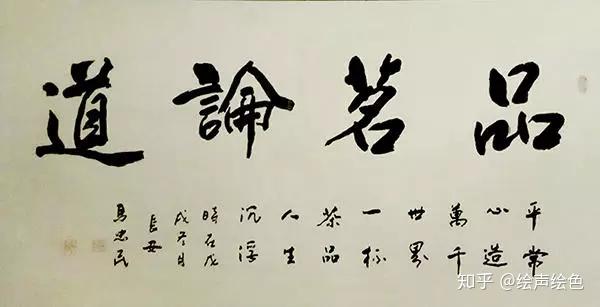 品茗論道
平常
心造
萬千
世界
一杯
茶品
人生
沉浮
時在戊
戌冬月
長安
馬忠民
知乎 @绘声绘色